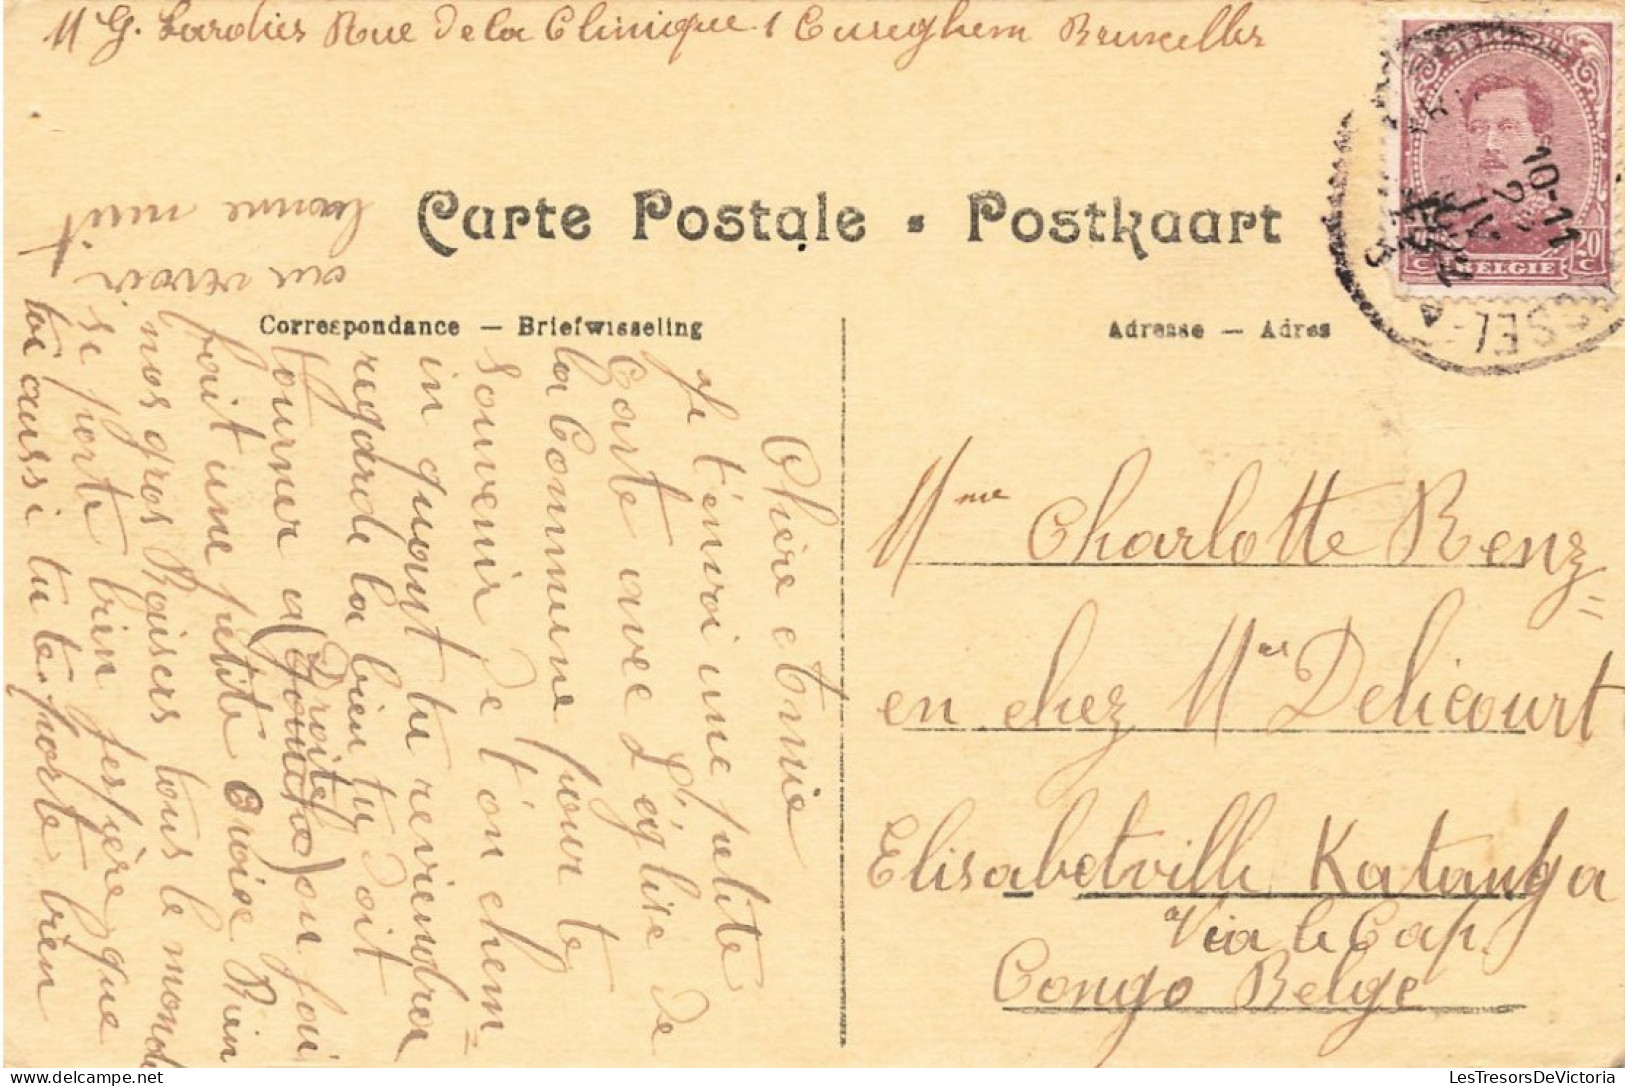 M G. Lardies Rue de la Clinique 1 Cureghem Bruxelles
Carte Postale - Postkaart
Correspondance — Briefwisseling
Adresse — Adres
Chère Amie
Je t'envoi une petite
Carte ave l'église de
la Commune pour te
souvenir de t'on chem=
in quant tu reviendra
regarde la bien tu doit
tourner a (Droite)
(Gauche) ou foui
fait une petite Croise Bien
nos gros Baisers tous le monde
se porte bien j'espère que
toi aussi tu te porte bien
au revoir
bonne nuit
Mme Charlotte Renz
en chez Mer Delicourt
Elisabetville Katanga
Via le Cap.
Congo Belge
10-11
BELGIE
20 c
LesTresorsDeVictoria